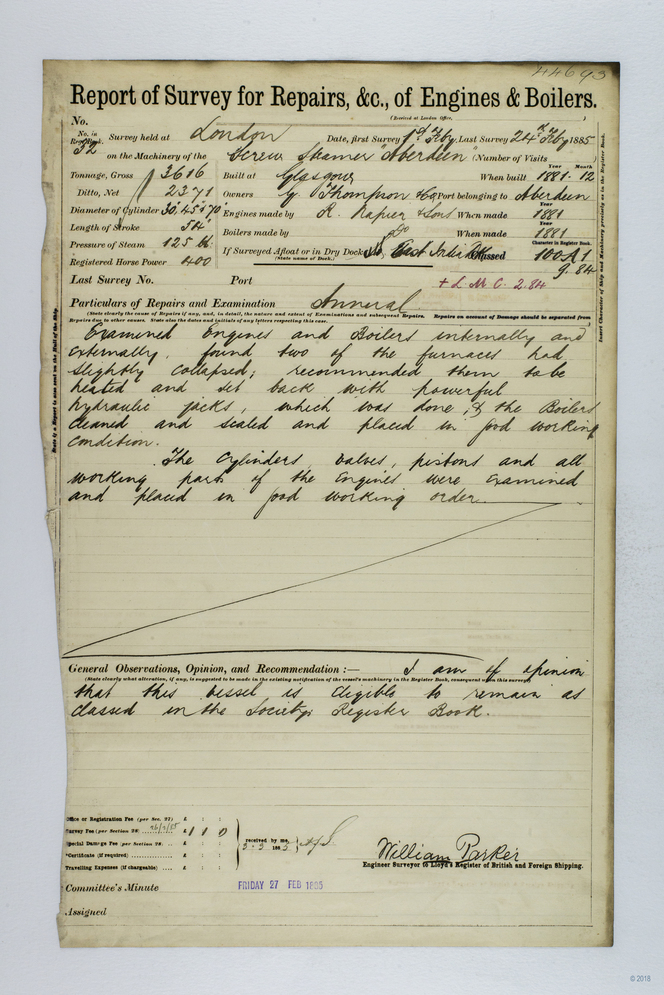 44693
Report of Survey for Repairs, &c., of Engines & Boilers.
No. (Received at London Office, )
No. in Reg. Book. 32 Survey held at London Date, first Survey 1st Feby. Last Survey 24th Feby 1885
on the Machinery of the Screw Steamer "Aberdeen" (Number of Visits )
Tonnage, Gross 3616 Built at Glasgow When built Year 1881. Month 12
Ditto, Net 2371 Owners G. Thompson & Co Port belonging to Aberdeen
Diameter of Cylinder 30", 45" & 70" Engines made by R. Napier & Sons When made Year 1881
Length of Stroke 54" Boilers made by Do When made Year 1881
Pressure of Steam 125 lb. If Surveyed Afloat or in Dry Dock East India Classed Character in Register Book. 100 A1
(State name of Dock.)
Registered Horse Power 400 9.84
Last Survey No. Port + L.M.C. 2.84
Particulars of Repairs and Examination Annual
(State clearly the cause of Repairs if any, and, in detail, the nature and extent of Examinations and subsequent Repairs. Repairs on account of Damage should be separated from
Repairs due to other causes. State also the dates and initials of any letters respecting this case.)
Examined Engines and Boilers internally and
externally, found two of the furnaces had
slightly collapsed; recommended them to be
heated and set back with powerful
hydraulic jacks, which was done, & the Boilers
cleaned and scaled and placed in good working
condition.
The Cylinders valves, pistons and all
working parts of the Engines were examined
and placed in good working order.
General Observations, Opinion, and Recommendation :— I am of opinion
(State clearly what alteration, if any, is suggested to be made in the existing notification of the vessel's machinery in the Register Book, consequent on this survey)
that this vessel is eligible to remain as
classed in the Society's Register Book.
Office or Registration Fee (per Sec. 27) £ : :
Survey Fee (per Section 28) £ 1 : 1 : 0
Special Damage Fee (per Section 28) £ : :
*Certificate (if required) £ : :
Travelling Expenses (if chargeable) £ : :
received by me,
3.3 1885
William Parker
Engineer Surveyor to Lloyd's Register of British and Foreign Shipping.
Committee's Minute FRIDAY 27 FEB 1885
Assigned
Insert Character of Ship and Machinery precisely as in the Register Book.
State if a Report is also now sent on the Hull of the Ship.
© 2018